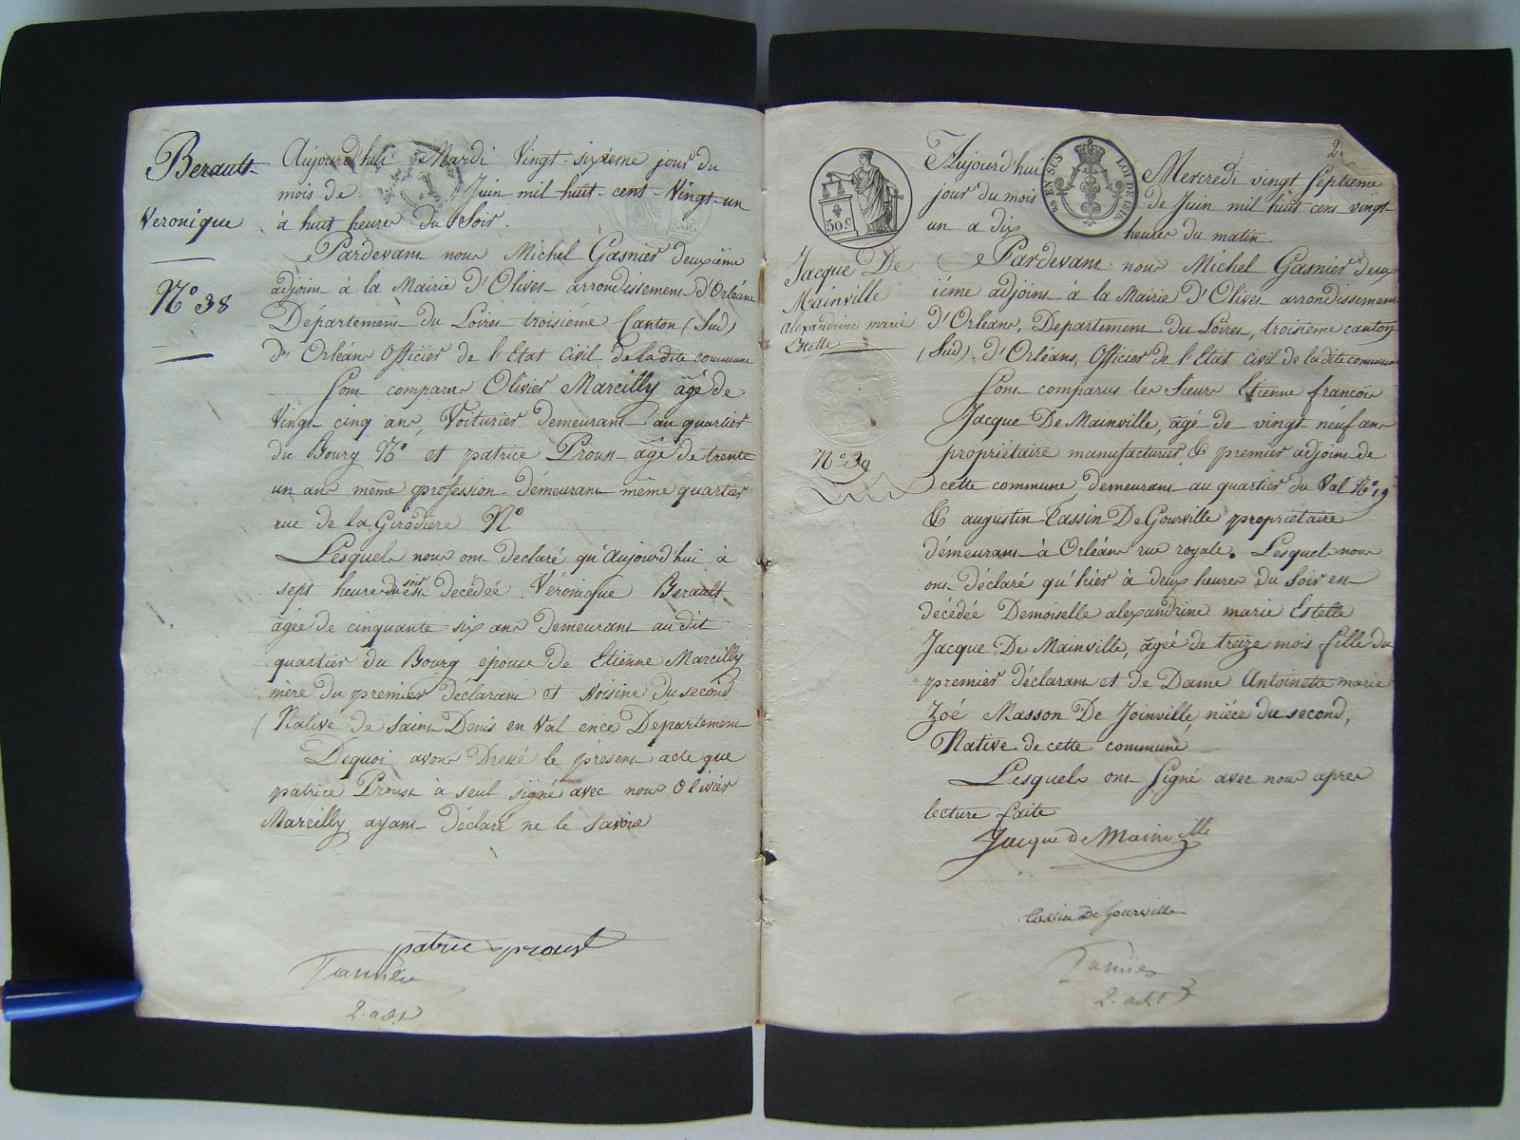 Berault
Veronique
N° 38
Aujourd'hui Mardi Vingt-sixieme jour du
mois de Juin mil huit-cent-Vingt-un
à huit heures du Soir.
Pardevant nous Michel Gasnier deuxième
adjoint à la Mairie d'Olivet arrondissement d'Orléans
Département du Loiret troisieme Canton (Sud)
d'Orléans officier de l'Etat Civil de la dite commune
Sont comparu Olivier Marcilly âgé de
Vingt cinq ans, Voiturier demeurant au quartier
du Bourg N° et patrice Proust âgé de trente
un ans même profession demeurant même quartier
rue de la Girodiere N°
Lesquels nous ont declaré qu'aujourd'hui à
sept heures du soir est decédée Véronique Berault
âgée de cinquante six ans demeurant au dit
quartier du Bourg épouse de Etienne Marcilly
mere du premier déclarant et Voisine du second
Native de Saint Denis en Val en ce Departement
Dequoi avons Dressé le présent acte que
patrice Proust à seul signé avec nous Olivier
Marcilly ayant Déclaré ne le savoir
patrice proust
2. adjt
2.
EN SUS
LOI DE 1816
50 c
Jacque De
Mainville
alexandrine marie
Estelle
N° 39
Aujourd'hui Mercredi vingt septieme
jour du mois de Juin mil huit cent vingt
un a dix heures du matin.
Pardevant nous Michel Gasnier deux
iéme adjoint à la Mairie d'Olivet arrondissement
d'Orléans, Departement du Loiret, troisième canton
(Sud) d'Orléans, Officier de l'Etat Civil de la dite commune
Sont comparus les Sieurs Etienne francois
Jacque De Mainville, âgé de vingt neuf ans
propriétaire manufacturier & premier adjoint de
cette commune, demeurant au quartier du Val N° 19
& augustin Cassin De Gourville propriétaire
démeurant à Orléans rue royale. Lesquels nous
ont déclaré qu'hier à deux heures du Soir est
décédée Demoiselle alexandrine marie Estelle
Jacque De Mainville, ageé de treize mois fille du
premier déclarant et de Dame Antoinette marie
Zoé Masson De Joinville, niéce du second,
Native de cette commune
Lesquels ont signé avec nous apres
lecture faite
Jacque de Mainville
Cassin de Gourville
2. adjt